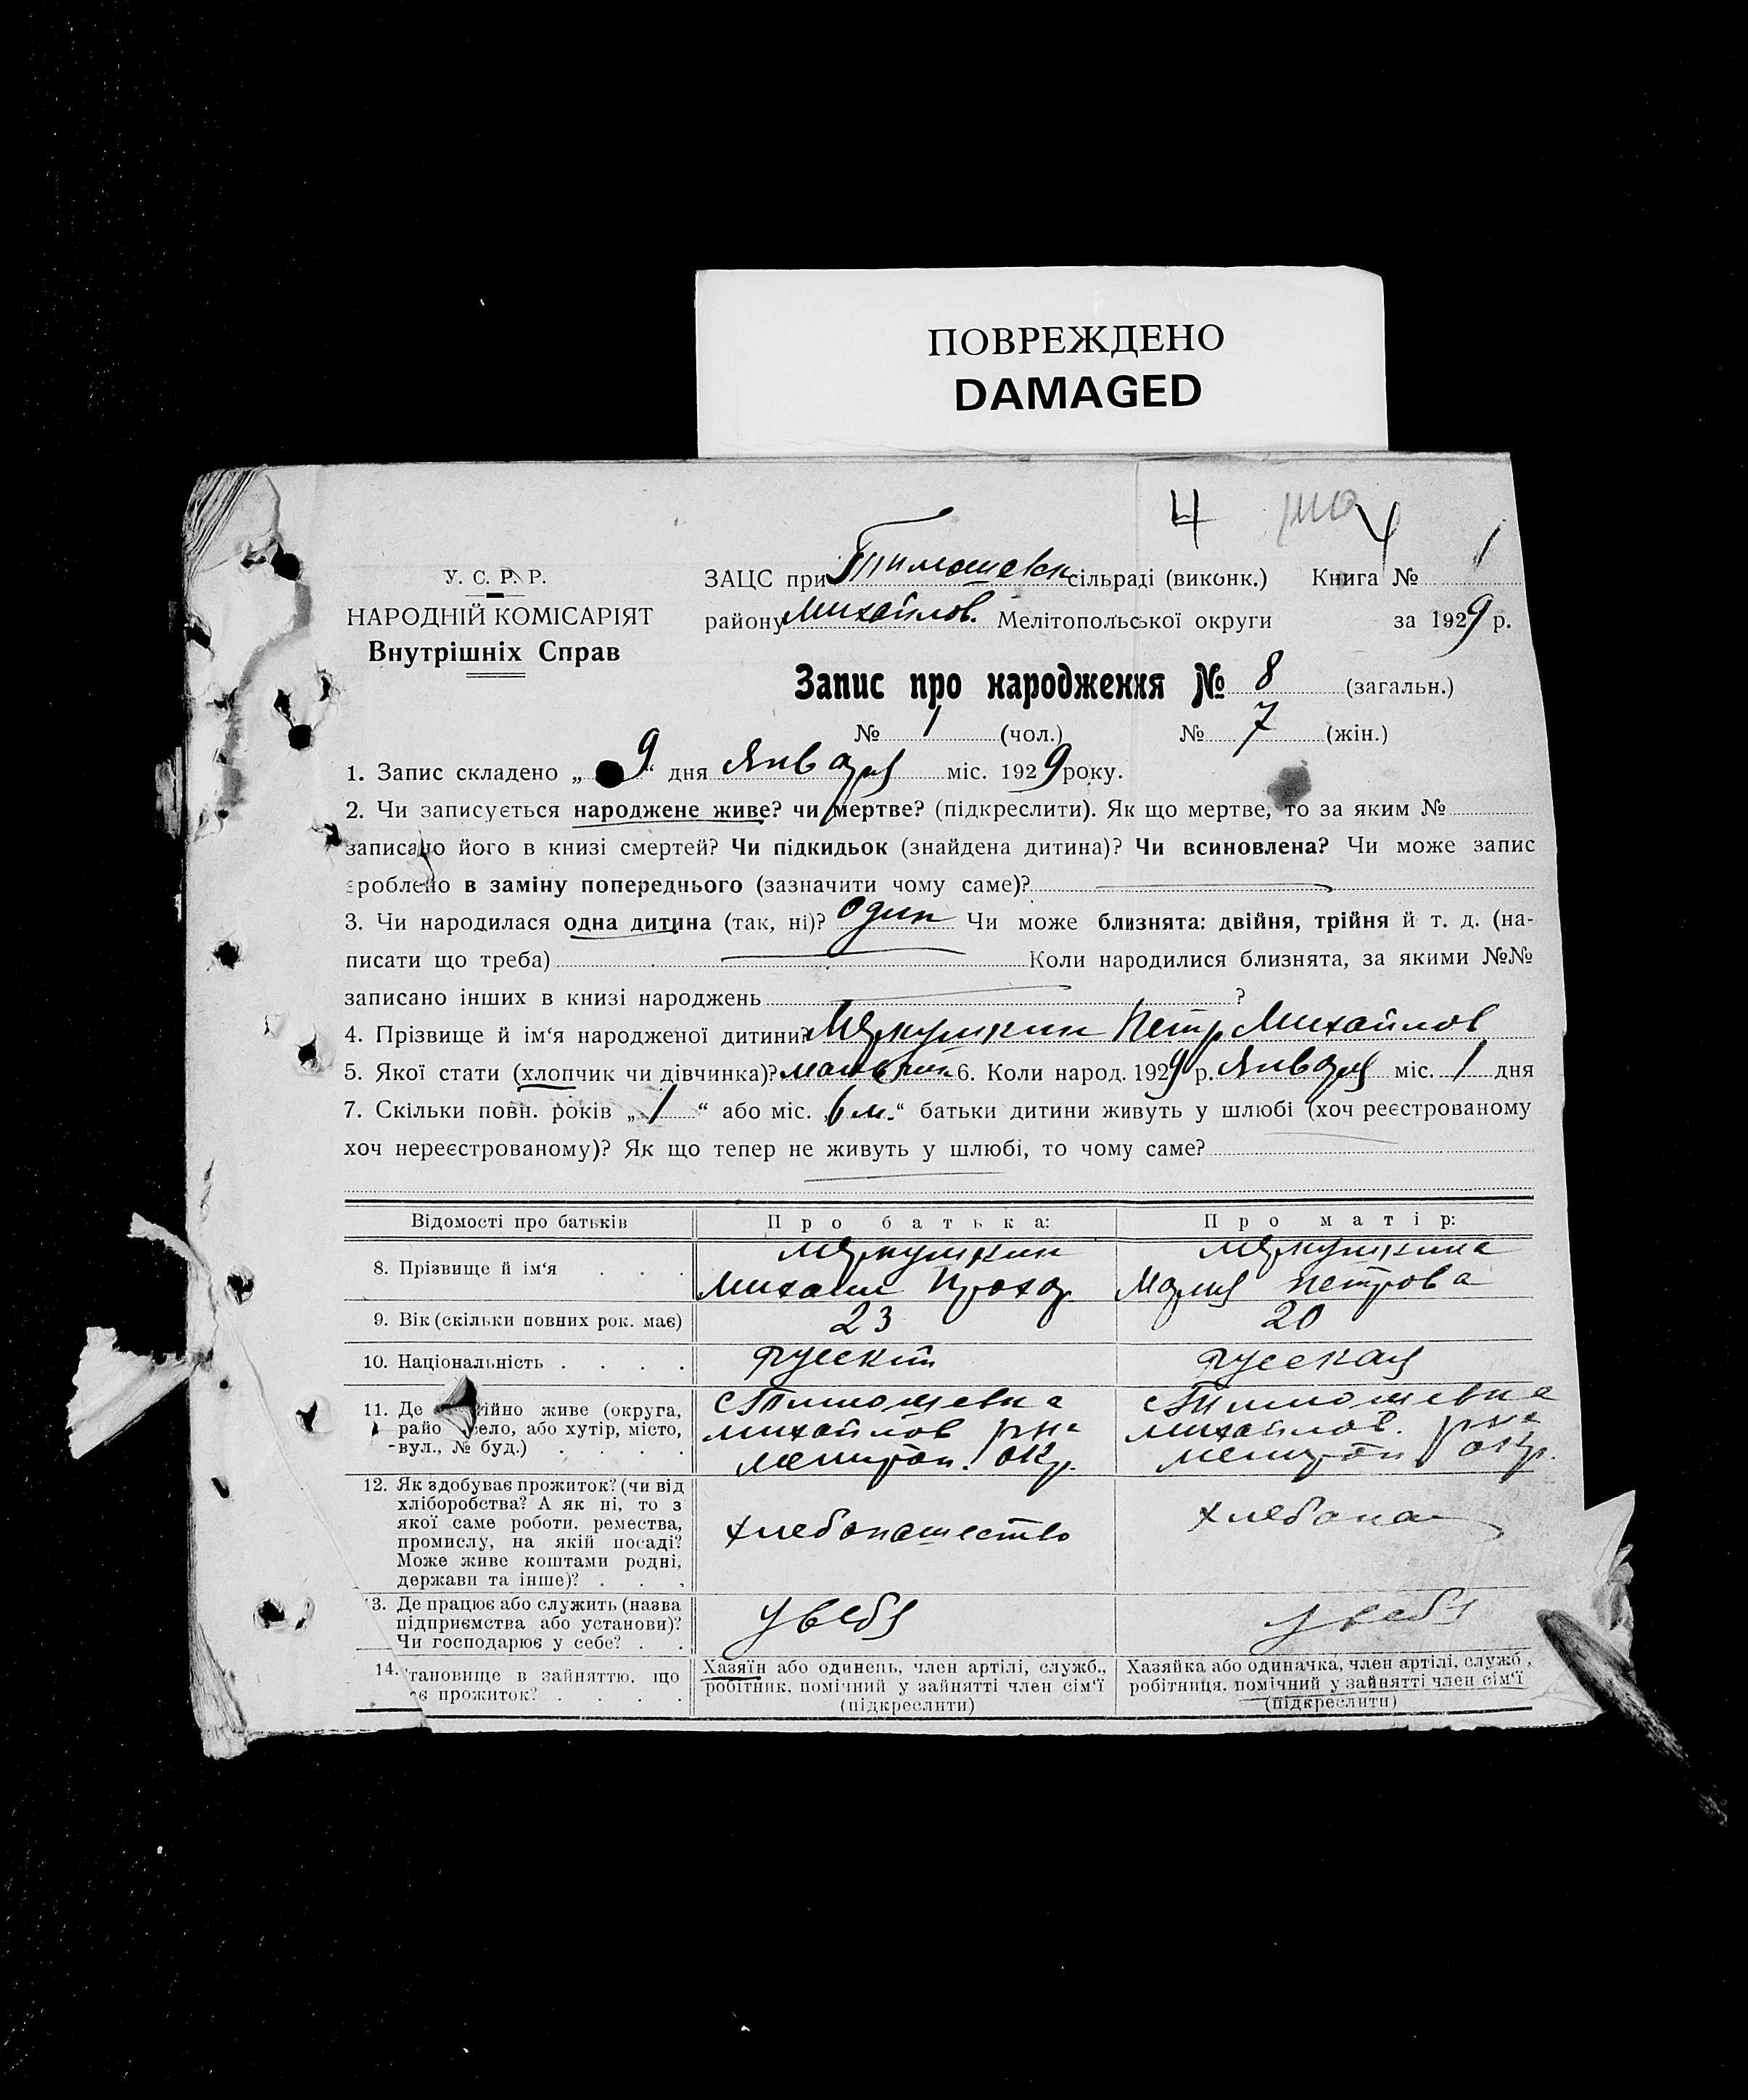 ПОВРЕЖДЕНО
DAMAGED
4 4
У. С. Р. Р.
НАРОДНІЙ КОМІСАРІЯТ
Внутрішніх Справ
ЗАЦС при Тимошевк сільраді (виконк.) Книга № 1
району Михайлов. Мелітопольської округи за 1929 р.
Запис про народження № 8 (загальн.)
№ 1 (чол.) № 7 (жін.)
1. Запис складено „ 9 “ дня Января міс. 1929 року.
2. Чи записується народжене живе? чи мертве? (підкреслити). Як що мертве, то за яким №
записано його в книзі смертей? Чи підкидьок (знайдена дитина)? Чи всиновлена? Чи може запис
зроблено в заміну попереднього (зазначити чому саме)?
3. Чи народилася одна дитина (так, ні)? один Чи може близнята: двійня, трійня й т. д. (на-
писати що треба) Коли народилися близнята, за якими №№
записано інших в книзі народжень ?
4. Прізвище й ім‘я народженої дитини? Петр Михайлов
5. Якої стати (хлопчик чи дівчинка)? мальчик 6. Коли народ. 1929 р. Января міс. 1 дня
7. Скільки повн. років „ 1 “ або міс. „ 6 м. “ батьки дитини живуть у шлюбі (хоч реєстрованому
хоч нереєстрованому)? Як що тепер не живуть у шлюбі, то чому саме?
Відомості про батьків Про батька: Про матір:
8. Прізвище й ім‘я
Михаил Прохор. Мария Петрова
9. Вік (скільки повних рок. має) 23 20
10. Національність русский русская
11. Де ійно живе (округа,
райо село, або хутір, місто,
вул., № буд.)
с Тимошевка с Тимошевка
михайлов рна михайлов. рна
мелитоп. окр. мелитоп окр.
12. Як здобуває прожиток? (чи від
хліборобства? А як ні, то з
якої саме роботи, ремества,
промислу, на якій посаді?
Може живе коштами родні,
держави та інше)?
хлебопашество хлебопа
13. Де працює або служить (назва
підприємства або установи)?
Чи господарює у себе?
у себя у себя
14. тановище в зайняттю, що
є прожиток?
Хазяїн або одинець, член артілі, служб.,
робітник, помічний у зайнятті член сім‘ї
(підкреслити)
Хазяйка або одиначка, член артілі, служб.,
робітниця, помічний у зайнятті член сім‘ї
(підкреслити)